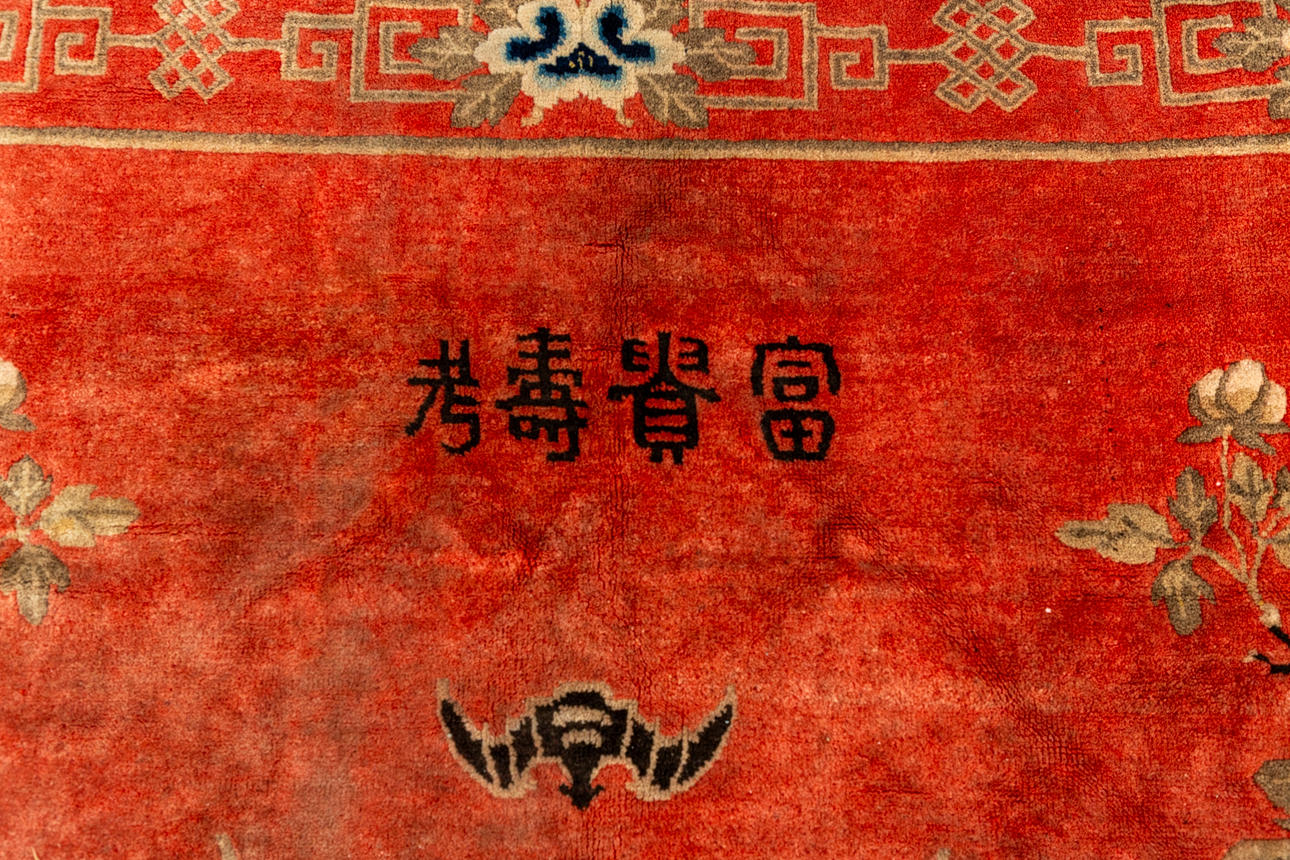 富貴壽考